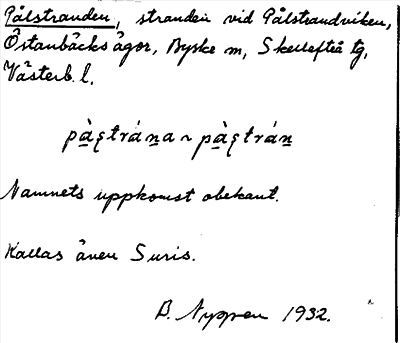 Pålstranden, stranden vid Pålstrandviken,
Östanbäcks ägor, Byske sn, Skellefteå tg,
Västerb. l.
pà̲ʂtrána̲ ~ pà̲ʂtrán̲
Namnets uppkomst obekant.
Kallas även Suris.
B. Nygren 1932.